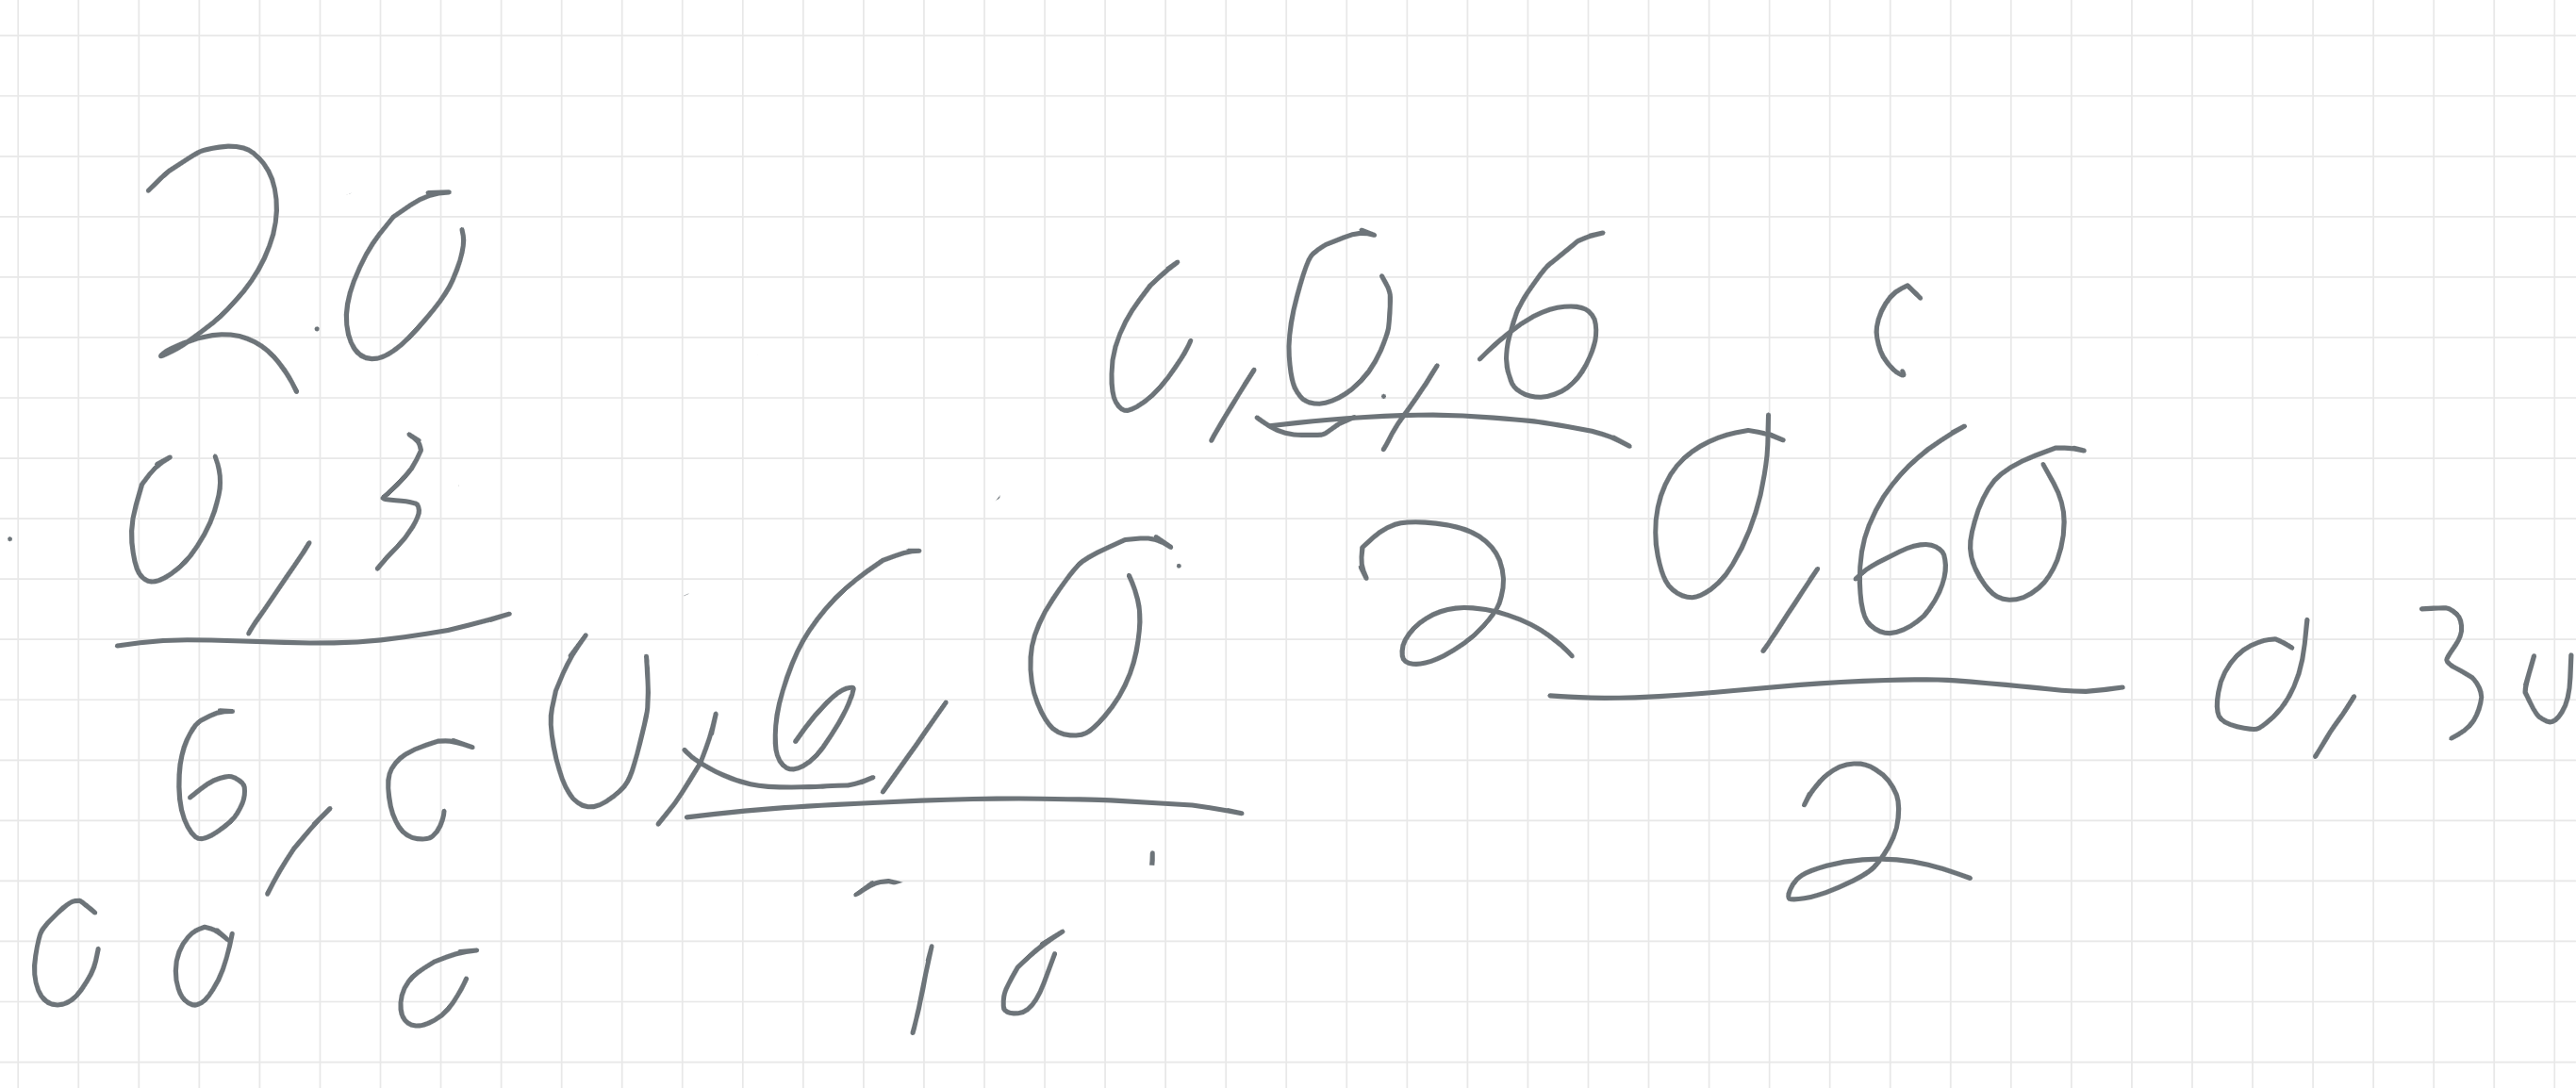 20
0,3
6,0
00 0
0,6,0
10
0,0,6
2
0,60
2
0,30